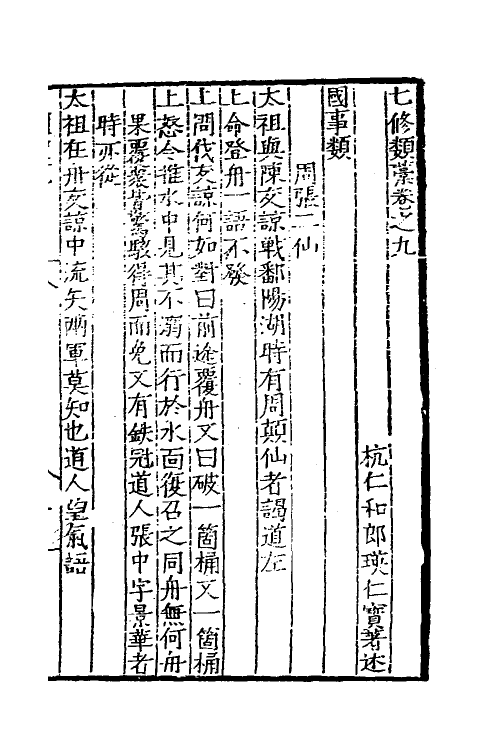 七修類藁卷之九
杭仁和郎瑛仁寶著述
國事類
周張二仙
太祖與陳友諒戰鄱陽湖時有周顛仙者謁道左
上命登舟一語不發
上問伐友諒何如對曰前途覆舟又曰破一箇桶又一箇桶
上怒令推水中見其不溺而行於水面復召之同舟無何舟
果覆裂賞驚駭得周而免又有鉄冠道人張中字景華者
時亦從
太祖在舟友諒中流矢兩軍莫知也道人望氣語